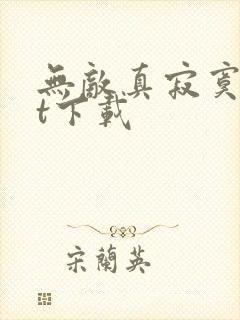 無敵真寂寞
t下載
宋蘭英